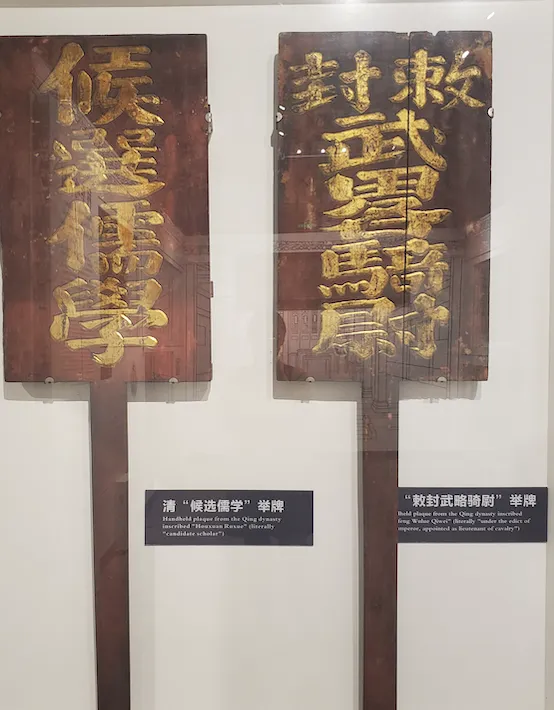 候選儒學
敕封
武畧騎尉
清“候选儒学”举牌
Handheld plaque from the Qing dynasty
inscribed "Houxuan Ruxue" (literally
"candidate scholar")
“敕封武略骑尉”举牌
plaque from the Qing dynasty inscribed
Wulue Qiwei" (literally "under the edict of
appointed as lieutenant of cavalry")